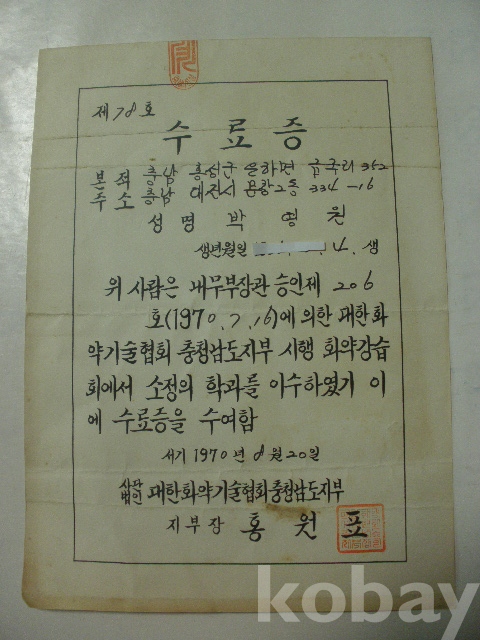 제 78 호
수료증
본적 충남 홍성군 은하면 금국리 352
주소 충남 대전시 용황2동 334-16
성명 박영원
생년월일 4. 생
위 사람은 내무부장관 승인제 206
호(1970.7.16)에 의한 대한화
약기술협회 충청남도지부 시행 화약강습
회에서 소정의 학과를 이수하였기 이
에 수료증을 수여함
서기 1970년 8월 20일
사단법인 대한화약기술협회충청남도지부
지부장 홍원표
kobay